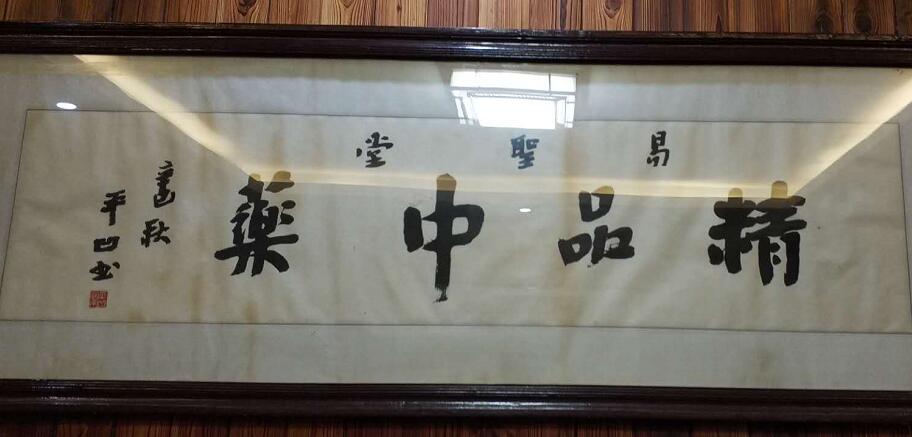 易聖堂
精品中藥
辛巳秋
平凹书